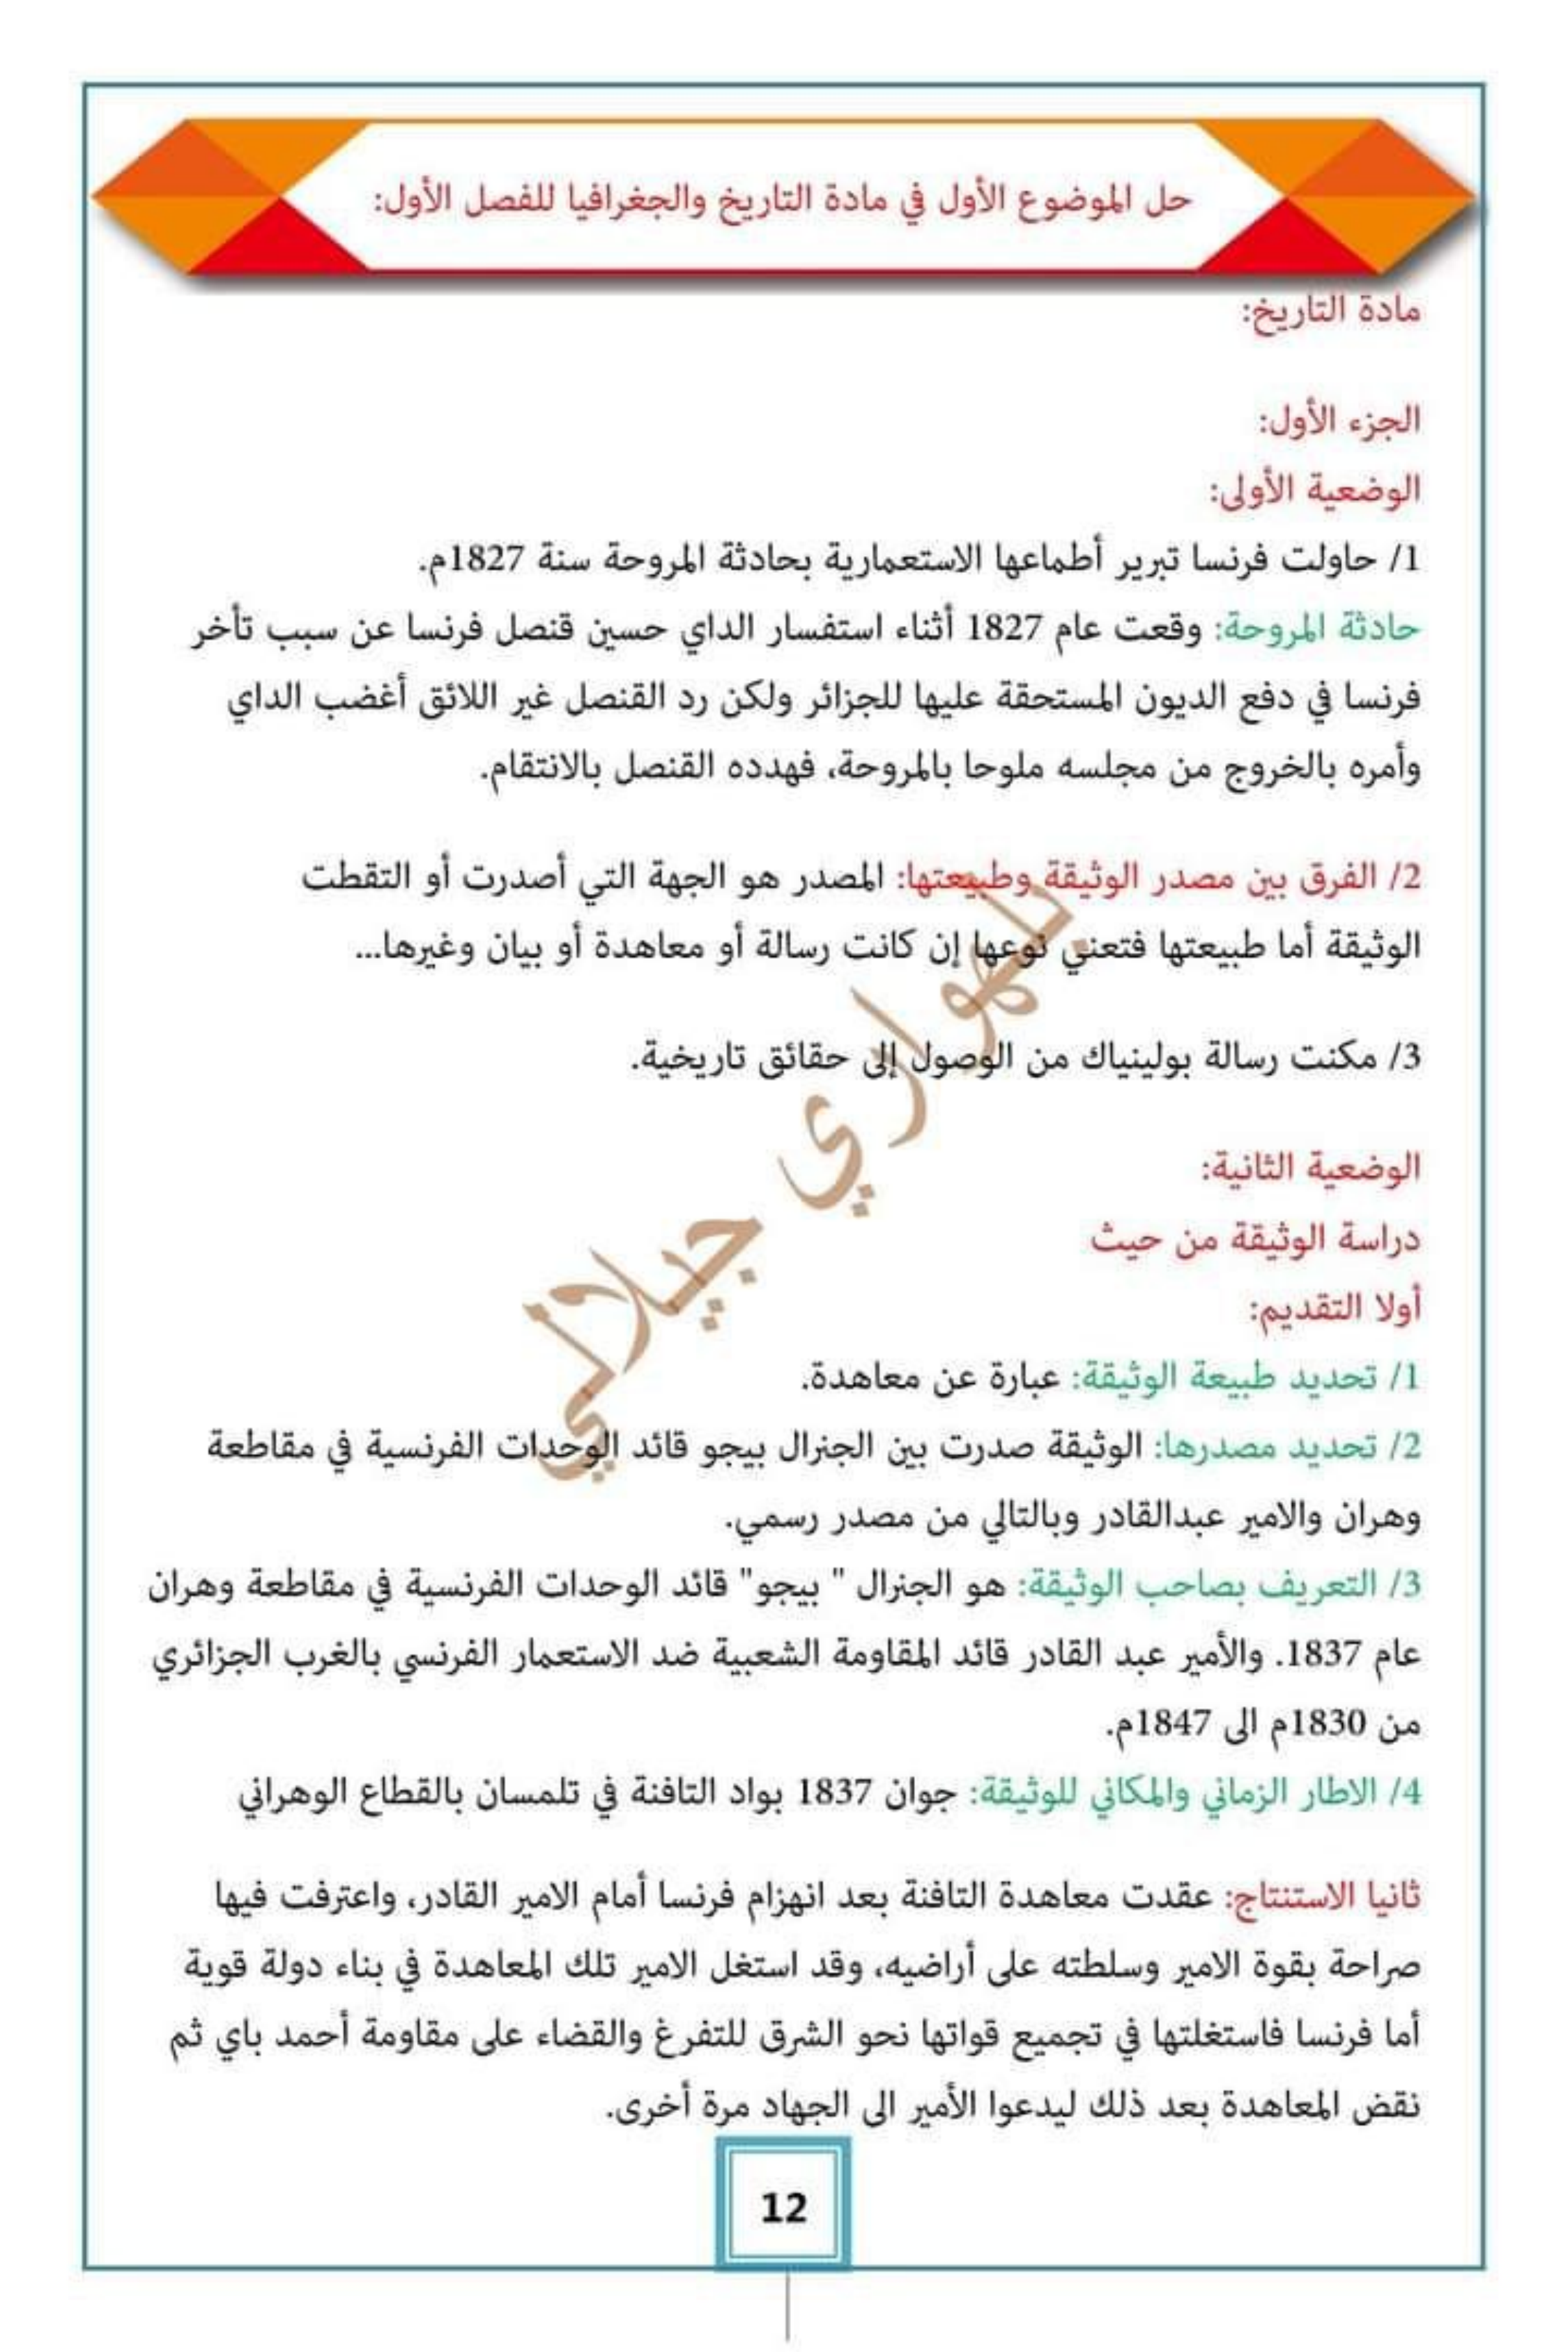 حل الموضوع الأول في مادة التاريخ والجغرافيا للفصل الأول:
مادة التاريخ:
الجزء الأول:
الوضعية الأولى:
1/ حاولت فرنسا تبرير أطماعها الاستعمارية بحادثة المروحة سنة 1827م.
حادثة المروحة: وقعت عام 1827 أثناء استفسار الداي حسين قنصل فرنسا عن سبب تأخر
فرنسا في دفع الديون المستحقة عليها للجزائر ولكن رد القنصل غير اللائق أغضب الداي
وأمره بالخروج من مجلسه ملوحا بالمروحة، فهدده القنصل بالانتقام.
2/ الفرق بين مصدر الوثيقة وطبيعتها: المصدر هو الجهة التي أصدرت أو التقطت
الوثيقة أما طبيعتها فتعني نوعها إن كانت رسالة أو معاهدة أو بيان وغيرها...
3/ مكنت رسالة بولينياك من الوصول إلى حقائق تاريخية.
الوضعية الثانية:
دراسة الوثيقة من حيث
أولا التقديم:
1/ تحديد طبيعة الوثيقة: عبارة عن معاهدة.
2/ تحديد مصدرها: الوثيقة صدرت بين الجنرال بيجو قائد الوحدات الفرنسية في مقاطعة
وهران والامير عبدالقادر وبالتالي من مصدر رسمي.
3/ التعريف بصاحب الوثيقة: هو الجنرال " بيجو" قائد الوحدات الفرنسية في مقاطعة وهران
عام 1837. والأمير عبد القادر قائد المقاومة الشعبية ضد الاستعمار الفرنسي بالغرب الجزائري
من 1830م الى 1847م.
4/ الاطار الزماني والمكاني للوثيقة: جوان 1837 بواد التافنة في تلمسان بالقطاع الوهراني
ثانيا الاستنتاج: عقدت معاهدة التافنة بعد انهزام فرنسا أمام الامير القادر، واعترفت فيها
صراحة بقوة الامير وسلطته على أراضيه، وقد استغل الامير تلك المعاهدة في بناء دولة قوية
أما فرنسا فاستغلتها في تجميع قواتها نحو الشرق للتفرغ والقضاء على مقاومة أحمد باي ثم
نقض المعاهدة بعد ذلك ليدعوا الأمير الى الجهاد مرة أخرى.
بلهواري جيلالي
12